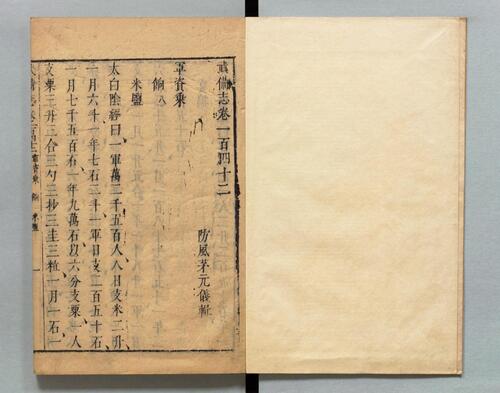 武備志卷一百四十二
防風茅元儀輯
軍資乘
餉八
米鹽
太白陰經曰一軍萬二千五百人人日支米二升
一月六斗一年七石二斗一軍日支二百五十石
一月七千五百石一年九萬石以六分支粟一人
支粟三升三合三勺三抄三圭三粒一月一石一